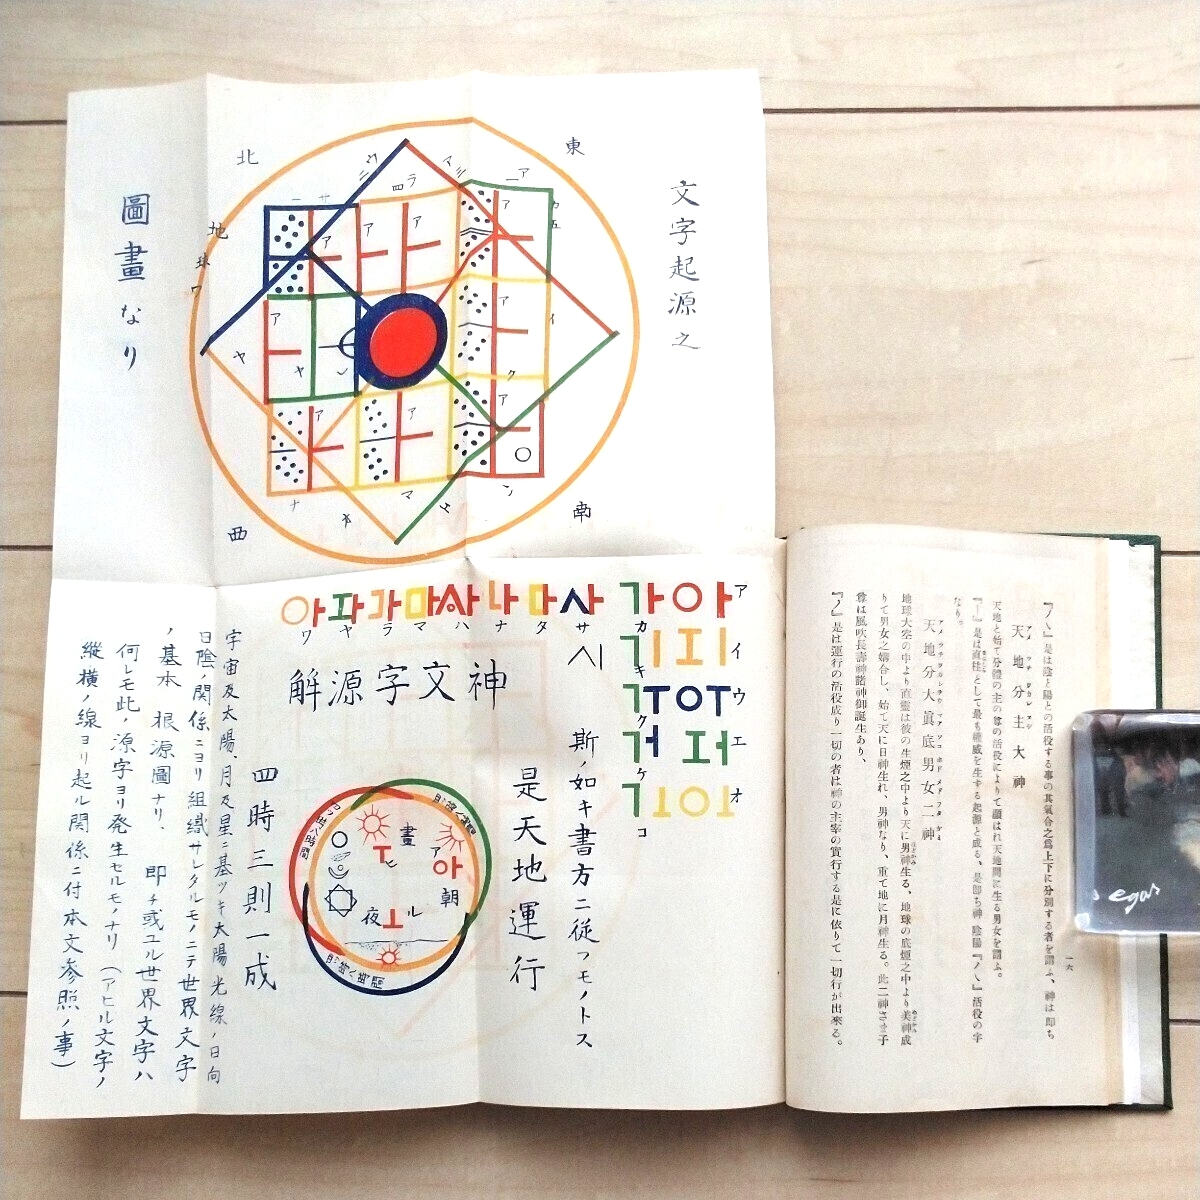 文字起源之
圖畫なり
東
北
南
西
地球ワ
아파라마사나다사가아
ワヤラマハナタサカア
神文字源解
斯ノ如キ書方ニ従フモノトス
是天地運行
四時三則一成
晝
朝
夜
ア
아
ヒ
ル
宇宙及太陽、月及星ニ基ツキ太陽光線ノ日向
日陰ノ関係ニヨリ組織サレタルモノニテ世界文字
ノ基本根源圖ナリ、即チ或ユル世界文字ハ
何レモ此ノ源字ヨリ発生セルモノナリ(アヒル文字ノ
縦横ノ線ヨリ起ル関係ニ付本文参照ノ事)
『ハ』是は陰と陽との活役する事の其氣合之爲上下に分別する者を謂ふ、神は即ち
天地分主大神
天地と始て分體の主の尊の活役によりて顯はれ天地間に生る男女を謂ふ。
『ー』是は直柱として最も權威を生する起源と成る、是即ち神陰陽『ハ』活役の字
なり。
天地分大眞底男女二神
地球大空の中より直靈は彼の生煙之中より天に男神生る、地球の底煙之中より美神成
りて男女之嬉合し、始て天に日神生れ、男神なり、重て地に月神生る。此二神さま子
尊は風吹長壽神諸神御誕生あり、
『ノ』是は運行の活役成り一切の者は神の主宰の實行する是に依りて一切行が出來る。
一六
egas